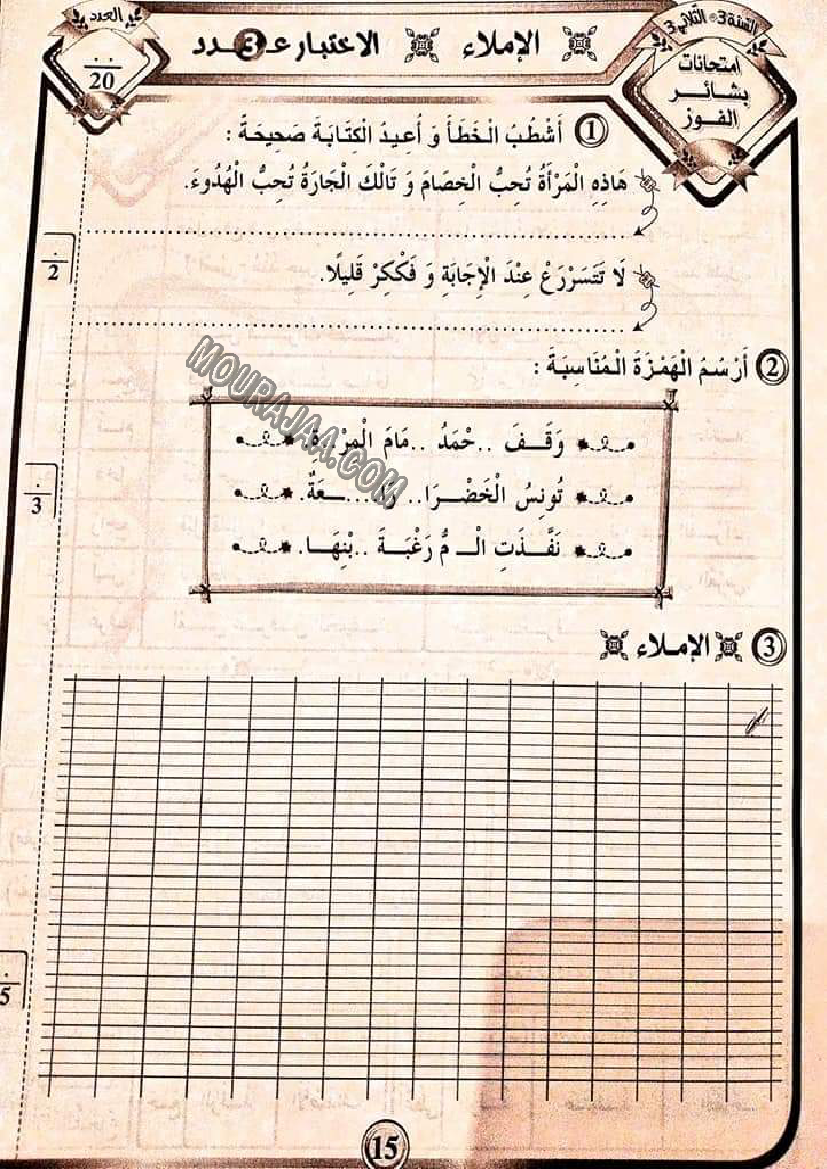 السنة 3 • الثلاثي 3
امتحانات
بشائر
الفوز
الإملاء
الاختبار عـ3ـدد
العدد
..
20
1 أَشْطُبُ الْخَطَأَ وَ أُعِيدُ الْكِتَابَةَ صَحِيحَةً :
هَاذِهِ الْمَرْأَةُ تُحِبُّ الْخِصَامَ وَ تَالْكَ الْجَارَةُ تُحِبُّ الْهُدُوءَ.
................................................
.
2
لَا تَتَسَرْرَعْ عِنْدَ الْإِجَابَةِ وَ فَكْكِرْ قَلِيلًا.
................................................
2 أَرْسُمُ الْهَمْزَةَ الْمُنَاسِبَةَ :
وَقَــفَ ..حْمَدُ ..مَامَ الْمِرْ..ةِ
.
3
تُونِسُ الْخَضْـرَا.. رَا....ـعَةٌ.
نَفَّـذَتِ الْـ مُّ رَغْبَـةَ ..بْنِهَـا.
3 الإملاء
.
5
15
MOURAJAA.COM